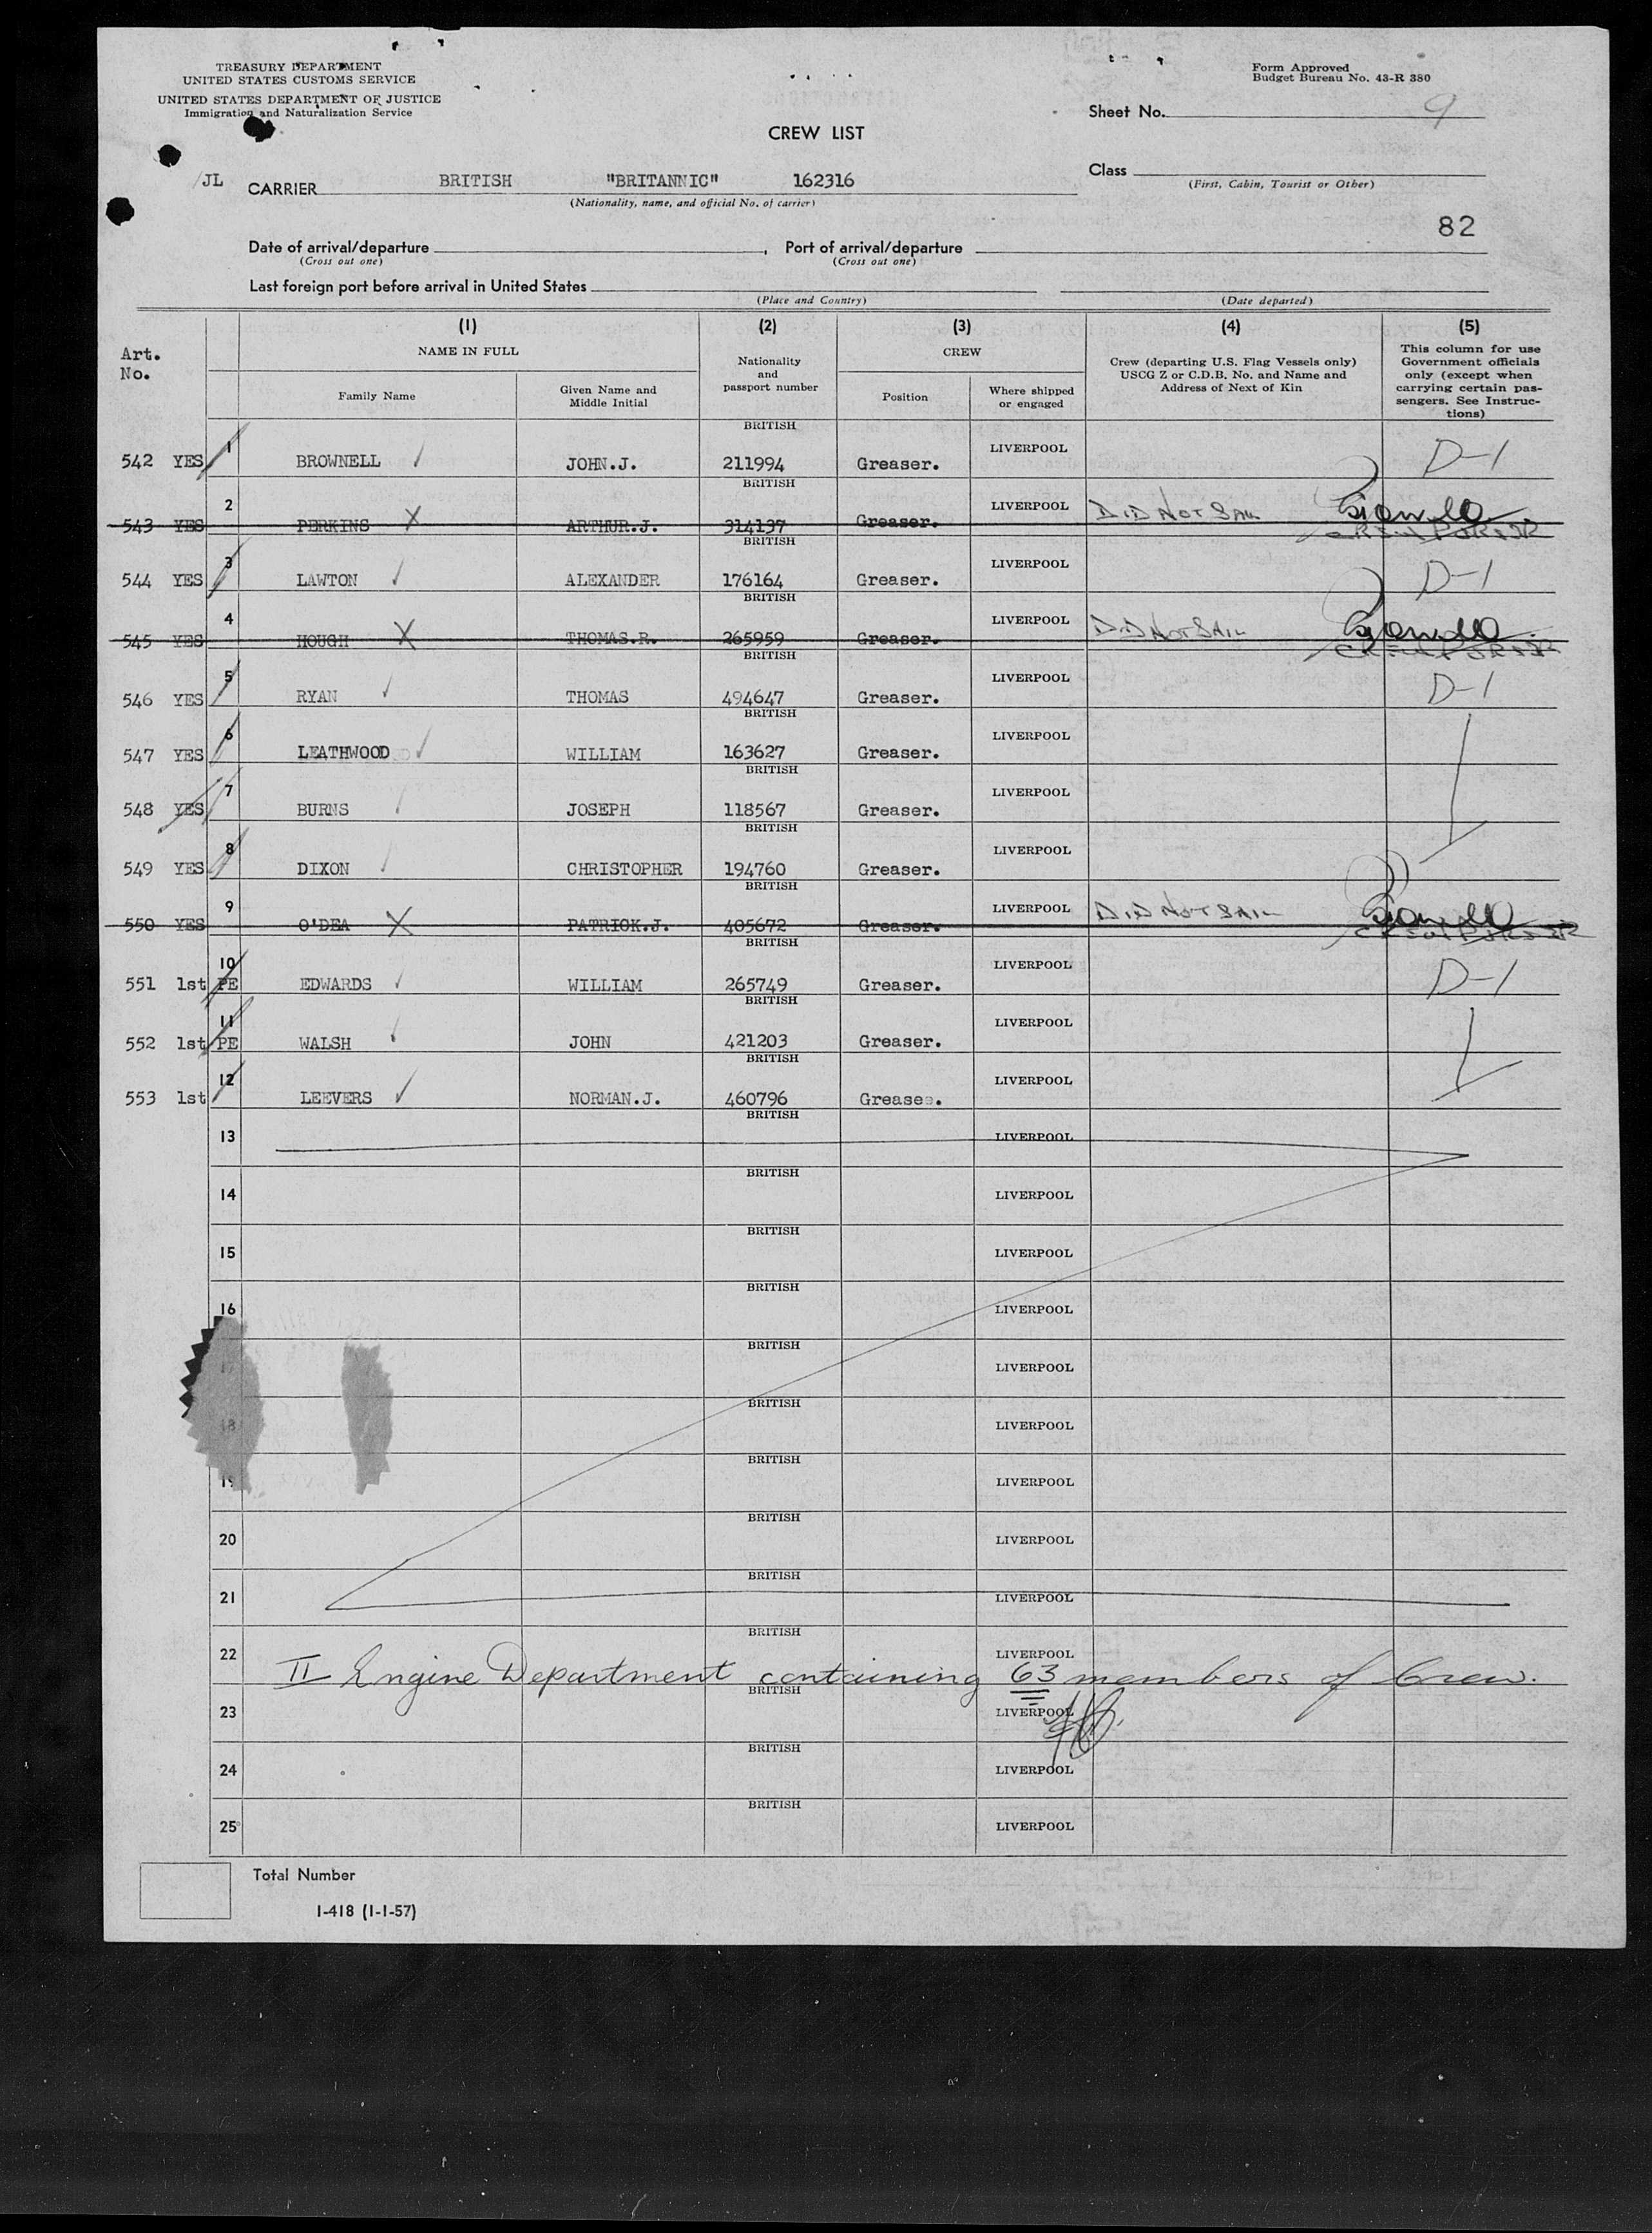 TREASURY DEPARTMENT
UNITED STATES CUSTOMS SERVICE
UNITED STATES DEPARTMENT OF JUSTICE
Immigration and Naturalization Service
Form Approved
Budget Bureau No. 43-R 380
Sheet No. 9
CREW LIST
JL CARRIER BRITISH "BRITANNIC" 162316
(Nationality, name, and official No. of carrier)
Class
(First, Cabin, Tourist or Other)
82
Date of arrival/departure , Port of arrival/departure
(Cross out one) (Cross out one)
Last foreign port before arrival in United States
(Place and Country) (Date departed)
Art. No.
(1) (2) (3) (4) (5)
NAME IN FULL
Family Name
Given Name and Middle Initial
Nationality and passport number
CREW
Position
Where shipped or engaged
Crew (departing U.S. Flag Vessels only) USCG Z or C.D.B. No. and Name and Address of Next of Kin
This column for use Government officials only (except when carrying certain passengers. See Instructions)
542 YES 1 BROWNELL JOHN.J. BRITISH 211994 Greaser. LIVERPOOL D-1
543 YES 2 PERKINS X ARTHUR.J. BRITISH 314137 Greaser. LIVERPOOL DID NOT SAIL CREW PURSER
544 YES 3 LAWTON ALEXANDER BRITISH 176164 Greaser. LIVERPOOL D-1
545 YES 4 HOUGH X THOMAS.R. BRITISH 265959 Greaser. LIVERPOOL DID NOT SAIL CREW PURSER
546 YES 5 RYAN THOMAS BRITISH 494647 Greaser. LIVERPOOL D-1
547 YES 6 LEATHWOOD WILLIAM BRITISH 163627 Greaser. LIVERPOOL
548 YES 7 BURNS JOSEPH BRITISH 118567 Greaser. LIVERPOOL
549 YES 8 DIXON CHRISTOPHER BRITISH 194760 Greaser. LIVERPOOL
550 YES 9 O'DEA X PATRICK.J. BRITISH 405672 Greaser. LIVERPOOL DID NOT SAIL CREW PURSER
551 1st PE 10 EDWARDS WILLIAM BRITISH 265749 Greaser. LIVERPOOL D-1
552 1st PE 11 WALSH JOHN BRITISH 421203 Greaser. LIVERPOOL
553 1st 12 LEEVERS NORMAN.J. BRITISH 460796 Greaser. LIVERPOOL
13 BRITISH LIVERPOOL
14 BRITISH LIVERPOOL
15 BRITISH LIVERPOOL
16 BRITISH LIVERPOOL
17 BRITISH LIVERPOOL
18 BRITISH LIVERPOOL
19 BRITISH LIVERPOOL
20 BRITISH LIVERPOOL
21 BRITISH LIVERPOOL
22 BRITISH LIVERPOOL
II Engine Department containing 63 members of Crew.
23 BRITISH LIVERPOOL
24 BRITISH LIVERPOOL
25 BRITISH LIVERPOOL
Total Number
I-418 (1-1-57)